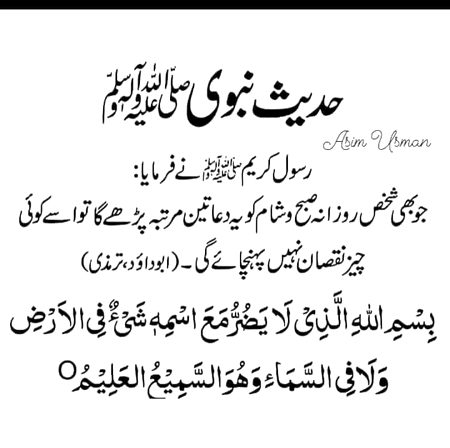 حدیث نبوی صلی اللہ علیہ وآلہ وسلم
Asim Usman
رسول کریم ﷺ نے فرمایا:
جو بھی شخص روزانہ صبح و شام کو یہ دعا تین مرتبہ پڑھے گا تو اسے کوئی
چیز نقصان نہیں پہنچائے گی۔ (ابوداؤد، ترمذی)
بِسْمِ اللهِ الَّذِیْ لَا یَضُرُّ مَعَ اسْمِهٖ شَیْءٌ فِی الْاَرْضِ
وَلَا فِی السَّمَاءِ وَهُوَ السَّمِیْعُ الْعَلِیْمُ